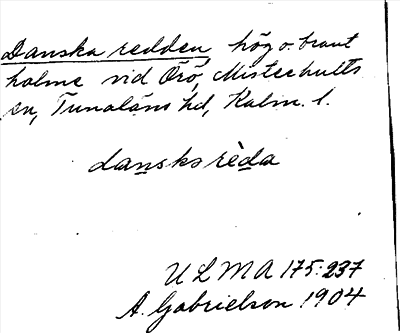 Danska redden, hög o. brant
holme vid Örö, Misterhults
sn, Tunaläns hd, Kalm. l.
dansks rèda
ULMA 175:237
A. Gabrielson 1904